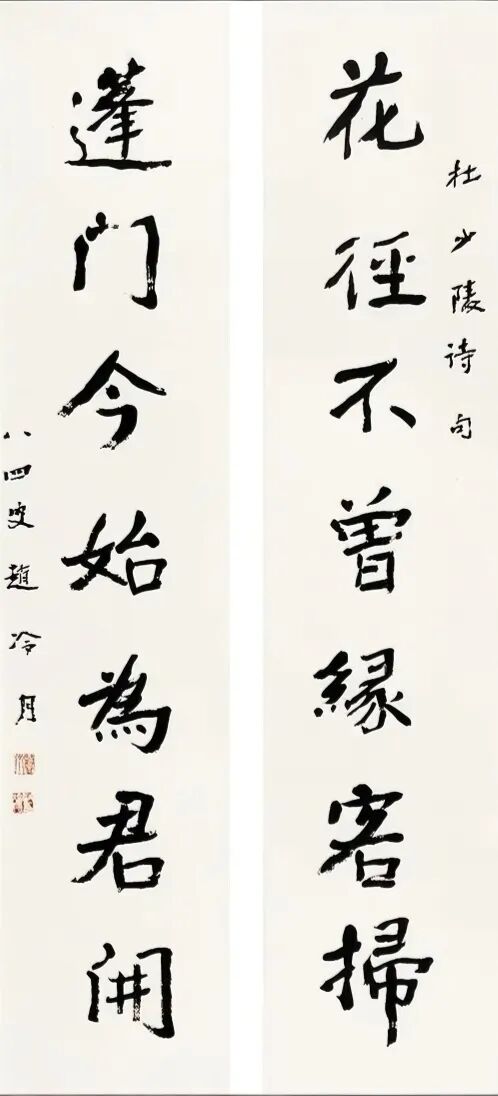 杜少陵诗句
花徑不曾緣客掃
蓬门今始為君開
八四叟趙冷月